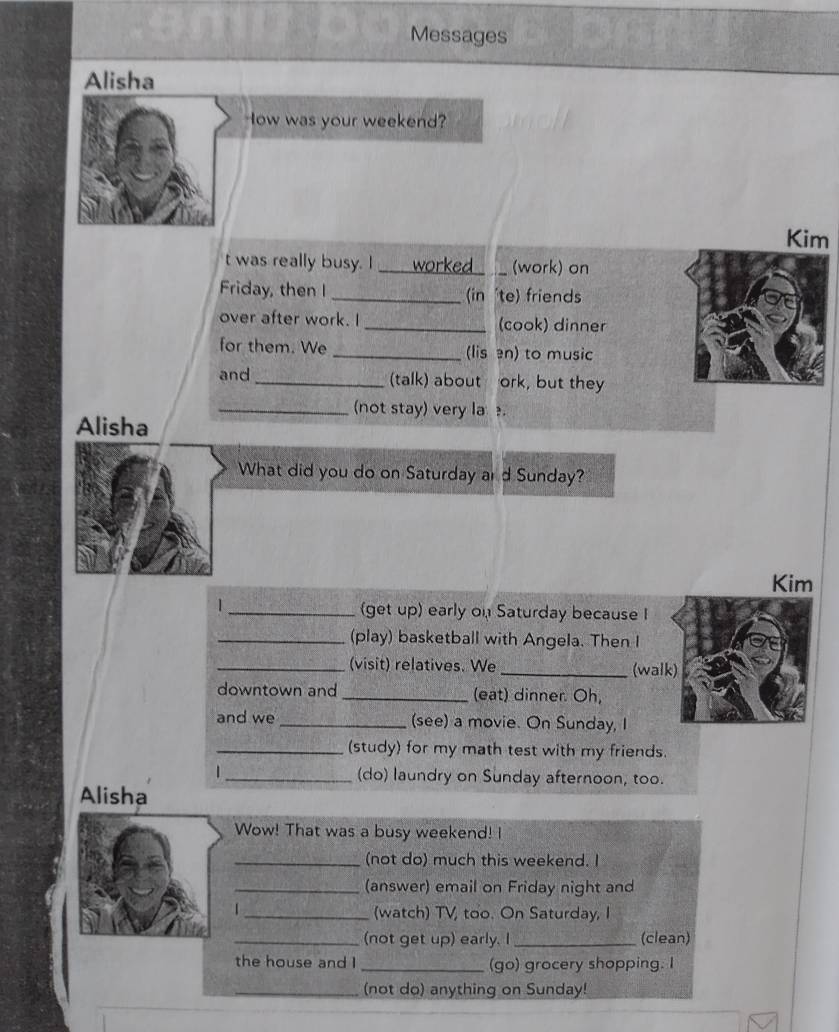 Messages
Alisha
How was your weekend?
Kim
It was really busy. I ____worked____ (work) on
Friday, then I ____________ (invite) friends
over after work. I ____________ (cook) dinner
for them. We ____________ (listen) to music
and ____________ (talk) about work, but they
____________ (not stay) very late.
Alisha
What did you do on Saturday and Sunday?
Kim
I ____________ (get up) early on Saturday because I
____________ (play) basketball with Angela. Then I
____________ (visit) relatives. We ____________ (walk)
downtown and ____________ (eat) dinner. Oh,
and we ____________ (see) a movie. On Sunday, I
____________ (study) for my math test with my friends.
I ____________ (do) laundry on Sunday afternoon, too.
Alisha
Wow! That was a busy weekend! I
____________ (not do) much this weekend. I
____________ (answer) email on Friday night and
I ____________ (watch) TV, too. On Saturday, I
____________ (not get up) early. I ____________ (clean)
the house and I ____________ (go) grocery shopping. I
____________ (not do) anything on Sunday!